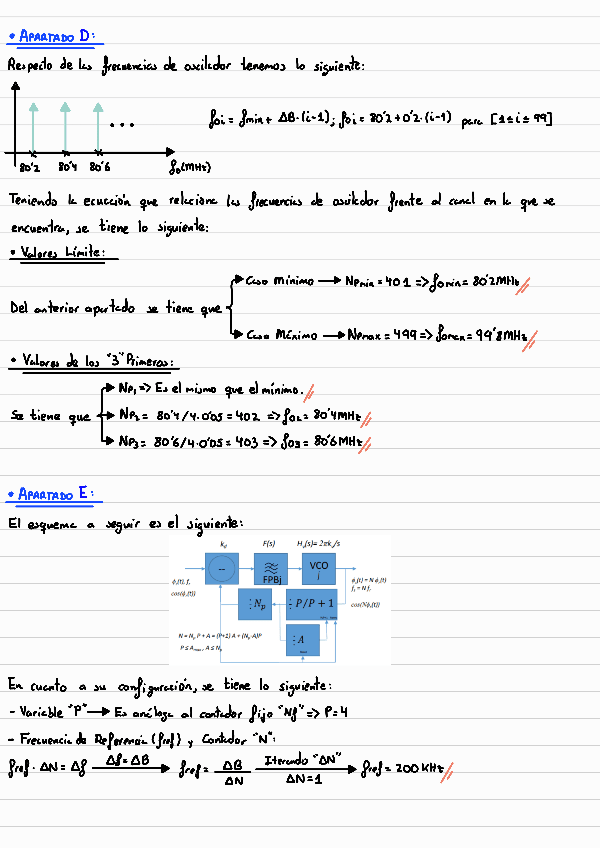 • APARTADO D:
Respecto de las frecuencias de oscilador tenemos lo siguiente:
foi = fmin + ΔB·(i-1); foi = 80'2+0'2·(i-1) para [1≤i≤99]
80'2 80'4 80'6 ... fo(MHz)
Teniendo la ecuación que relaciona las frecuencias de oscilador frente al canal en la que se
encuentra, se tiene lo siguiente:
• Valores Límite:
Caso mínimo → Npmin = 401 => fomin = 80'2MHz
Del anterior apartado se tiene que
Caso Máximo → Npmax = 499 => fomax = 99'8MHz
• Valores de los "3" Primeros:
Np1 => Es el mismo que el mínimo.
Se tiene que Np2 = 80'4/4·0'05 = 402 => fo2 = 80'4MHz
Np3 = 80'6/4·0'05 = 403 => fo3 = 80'6MHz
• APARTADO E:
El esquema a seguir es el siguiente:
kd F(s) Hv(s)= 2πkv/s
VCO
FPBj
cos(Nϕr(t))
÷Np ÷P/P + 1
÷A
N = Np P + A = (P+1) A + (Np-A)P
P ≤ Amax , A ≤ Np
En cuanto a su configuración, se tiene lo siguiente:
- Variable "P" → Es análoga al contador fijo "Nf" => P=4
- Frecuencia de Referencia (fref) y Contador "N":
fref · ΔN = Δf Δf=ΔB → fref = ΔB/ΔN Iterando "ΔN" ΔN=1 → fref = 200 KHz